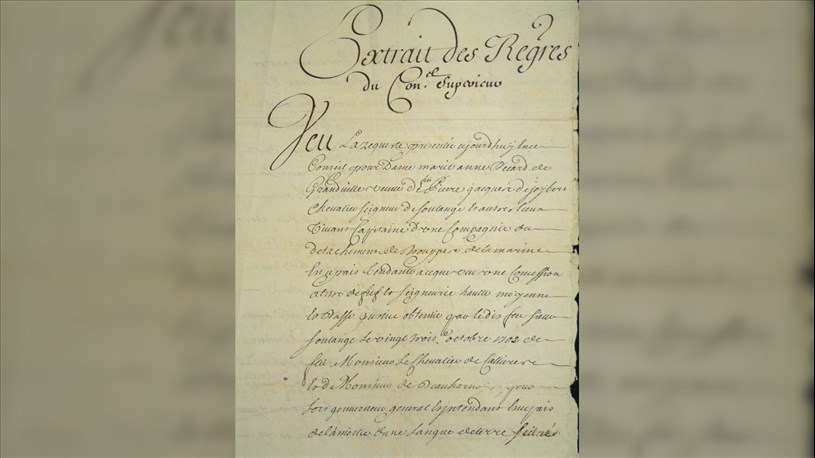 Extrait des Regres
du Con.el Superieur
Veu La requeste presentée aujourdhuy en ce
Conseil pour Dame marie anne Becard de
Grandville veuve de feu Pierre jacques de joybert
Chevalier Seigneur de Soulange et autres lieux
Vivant Capitaine d'une Compagnie du
detachement de trouppes de la marine
En ce païs tendante a ce que une Concession
a titre de fief et Seigneurie haute moyenne
et basse justice obtenüe par le dit feu Sieur
Soulange le vingt trois.e octobre 1702 de
feu Monsieur Le Chevalier de Calliere
et de Monsieur de Beauharnois, pour
lors gouverneur general et intendant en ce païs
de la moitié d'une langue de terre scituée